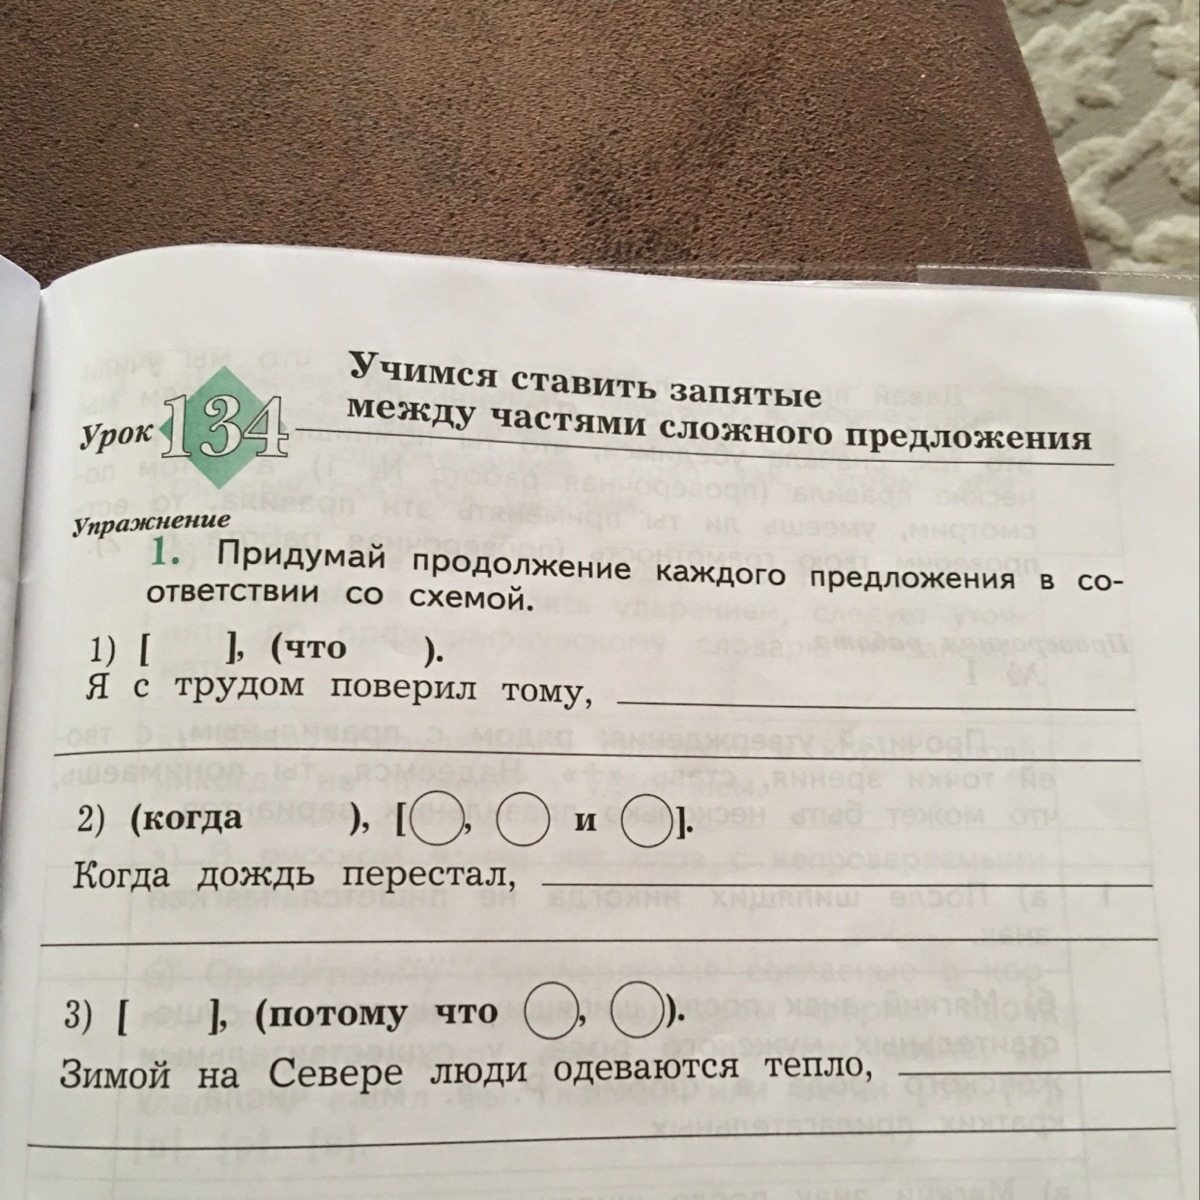 Учимся ставить запятые
между частями сложного предложения
Урок 134
Упражнение
1. Придумай продолжение каждого предложения в со-
ответствии со схемой.
1) [ ], (что ).
Я с трудом поверил тому,
2) (когда ), [◯, ◯ и ◯].
Когда дождь перестал,
3) [ ], (потому что ◯, ◯).
Зимой на Севере люди одеваются тепло,